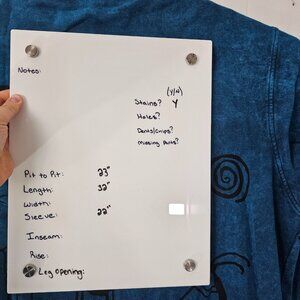 Notes:
(Y/N)
Stains? Y
Holes?
Dents/Chips?
Missing Parts?
Pit to Pit: 23"
Length: 32"
Width:
Sleeve: 22"
Inseam:
Rise:
Leg Opening: